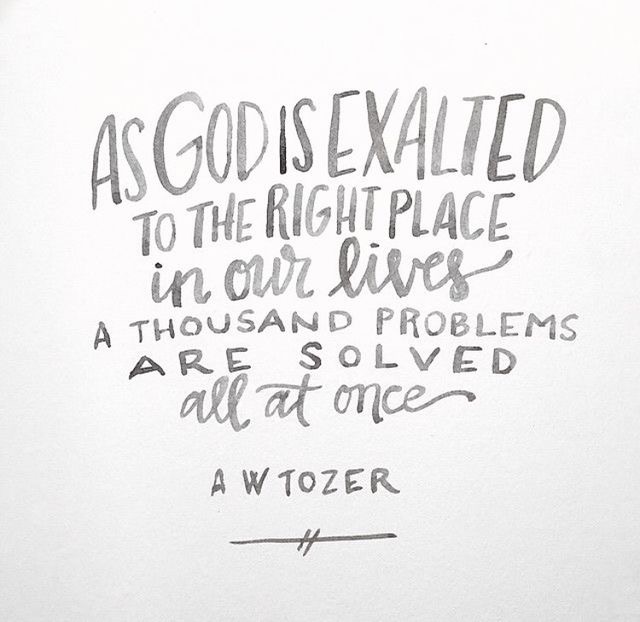 AS GOD IS EXALTED
TO THE RIGHT PLACE
in our lives
A THOUSAND PROBLEMS
ARE SOLVED
all at once
A W TOZER